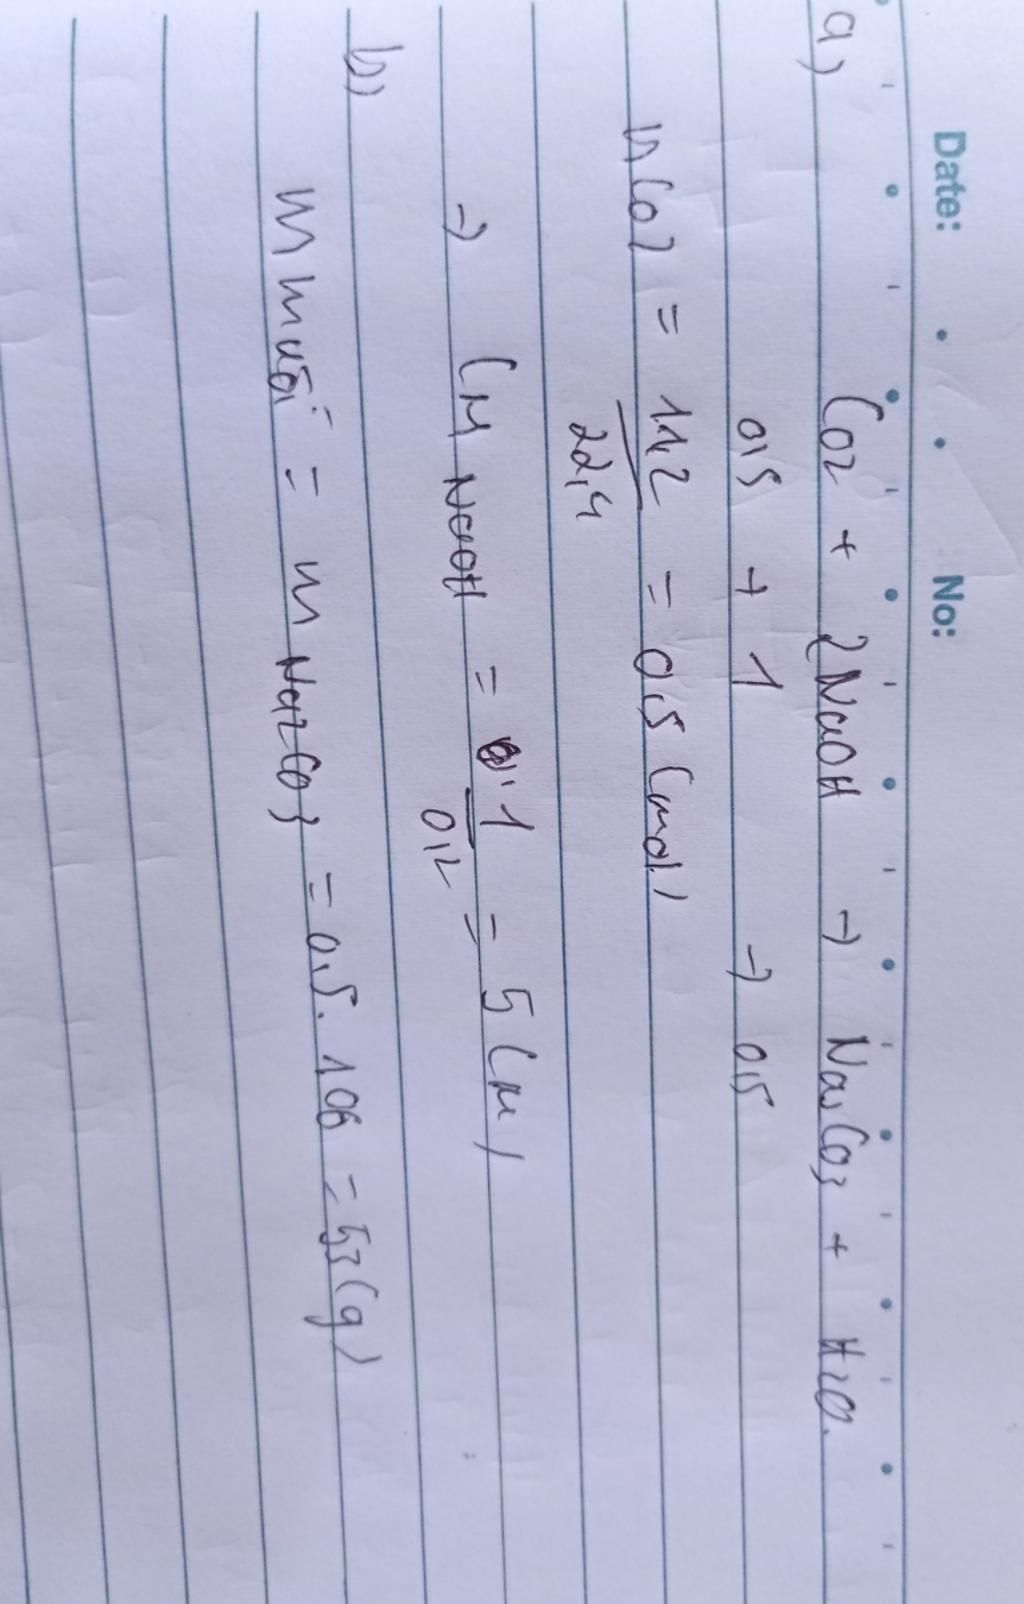 Date: No:
a) CO2 + 2NaOH → Na2CO3 + H2O.
0,5 → 1 → 0,5
nCO2 = 11,2 / 22,4 = 0,5 (mol)
→ CM NaOH = 1 / 0,2 = 5 (M)
b)
m muối = m Na2CO3 = 0,5. 106 = 53 (g)